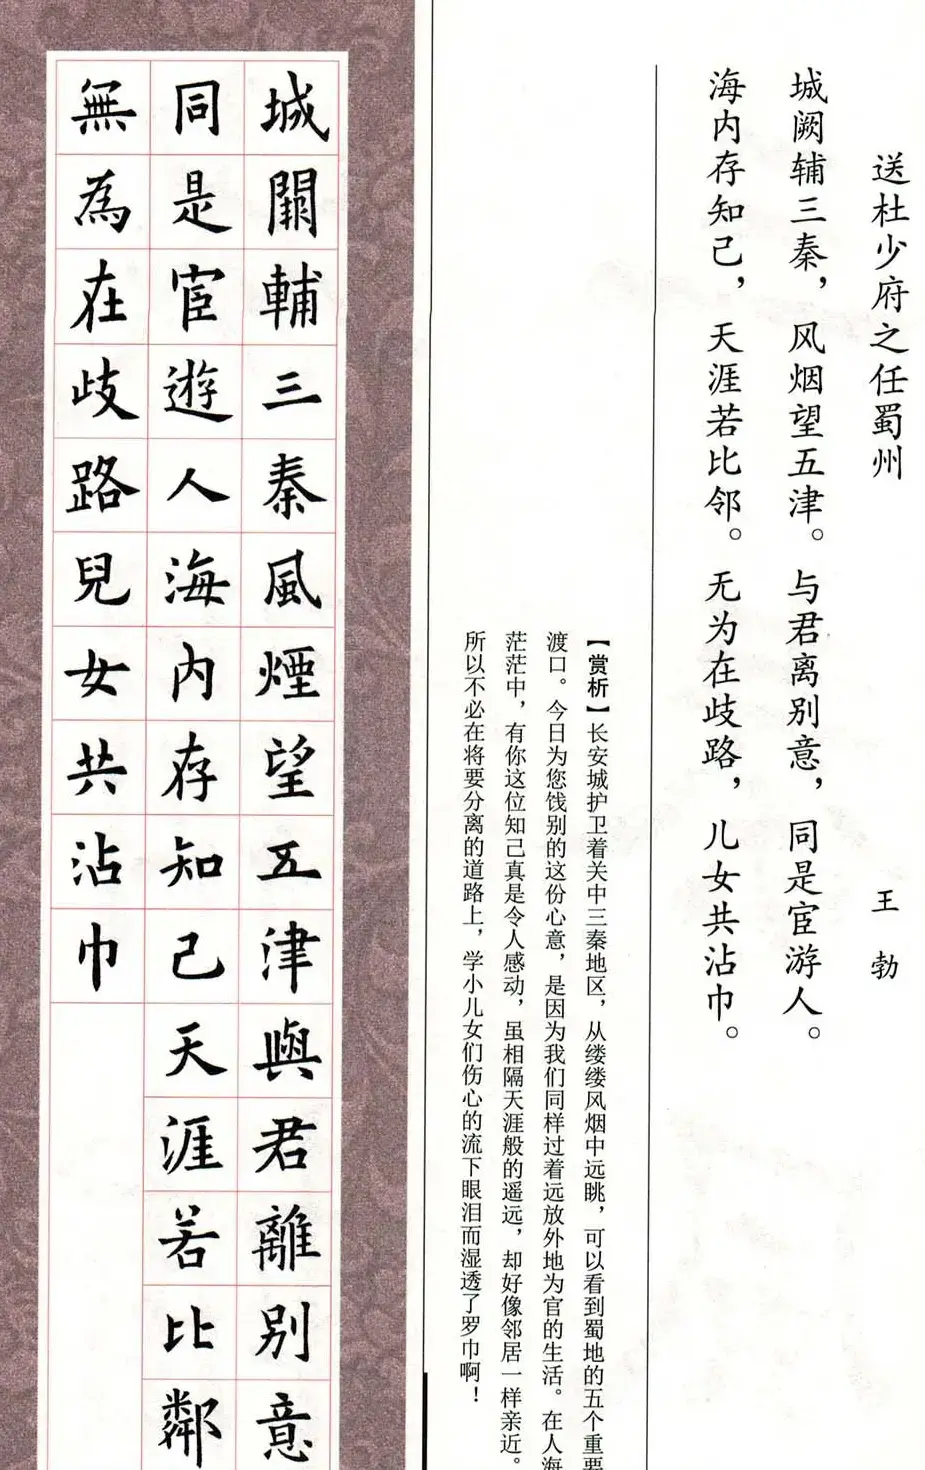 送杜少府之任蜀州
王勃
城阙辅三秦，风烟望五津。与君离别意，同是宦游人。
海内存知己，天涯若比邻。无为在歧路，儿女共沾巾。
【赏析】长安城护卫着关中三秦地区，从缕缕风烟中远眺，可以看到蜀地的五个重要
渡口。今日为您饯别的这份心意，是因为我们同样过着远放外地为官的生活。在人海
茫茫中，有你这位知己真是令人感动，虽相隔天涯般的遥远，却好像邻居一样亲近。
所以不必在将要分离的道路上，学小儿女们伤心的流下眼泪而湿透了罗巾啊！
城闕輔三秦風煙望五津與君離別意
同是宦遊人海内存知己天涯若比鄰
無為在歧路兒女共沾巾